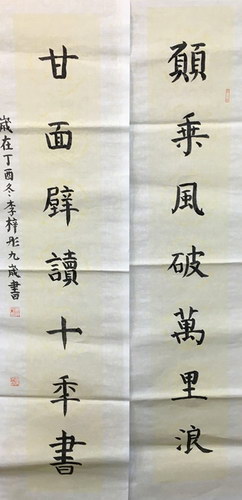 願乗風破萬里浪
甘面壁讀十年書
歲在丁酉冬李梓彤九歲書